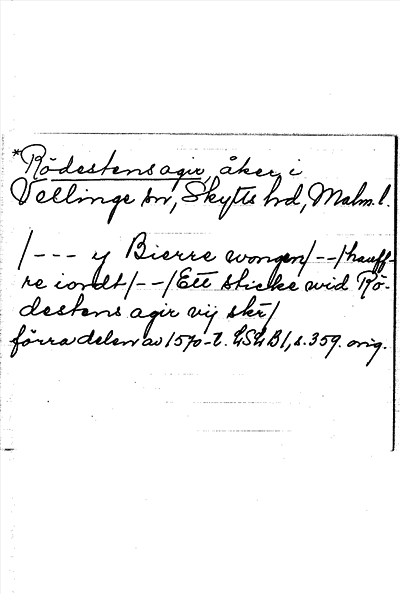 *Rödestens agir, åker i
Vellinge sn, Skytts hd, Malm. l.
/--- y Bierre wongen/--/hauff-
re iordt/--/Ett sticke wid Rö-
destens agir vij skr/
förra delen av 1570-t. LSLB 1, s. 359. orig.